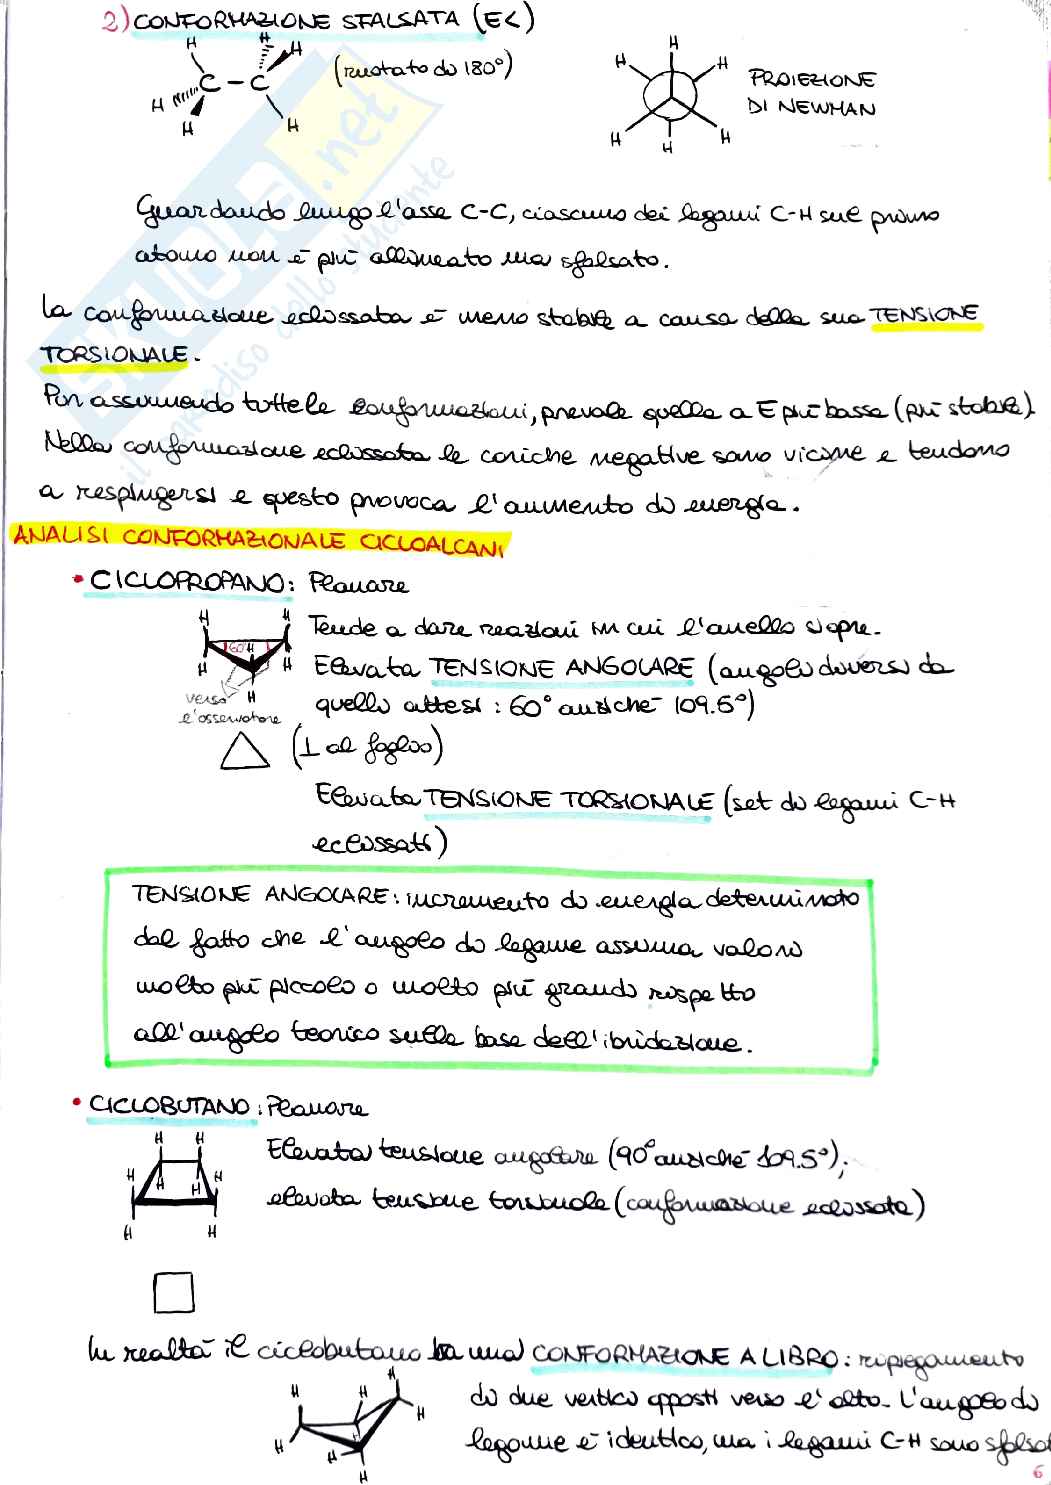 2) CONFORMAZIONE SFALSATA (E<)
(ruotato di 180°)
H H H
C - C
H H H
H
H H
H H
H
PROIEZIONE
DI NEWMAN
Guardando lungo l'asse C-C, ciascuno dei legami C-H sul primo
atomo non è più allineato ma sfalsato.
La conformazione eclissata è meno stabile a causa della sua TENSIONE
TORSIONALE.
Pur assumendo tutte le conformazioni, prevale quella a E più bassa (più stabile).
Nella conformazione eclissata le cariche negative sono vicine e tendono
a respingersi e questo provoca l'aumento di energia.
ANALISI CONFORMAZIONALE CICLOALCANI
• CICLOPROPANO: Planare
H H
60° H
H H
H
verso
l'osservatore
Tende a dare reazioni in cui l'anello si apre.
Elevata TENSIONE ANGOLARE (angoli diversi da
quelli attesi: 60° anziché 109.5°)
(⊥ al foglio)
Elevata TENSIONE TORSIONALE (set di legami C-H
eclissati)
TENSIONE ANGOLARE: incremento di energia determinato
dal fatto che l'angolo di legame assuma valori
molto più piccolo o molto più grandi rispetto
all'angolo teorico sulla base dell'ibridazione.
• CICLOBUTANO: Planare
H H
H H
H H
H H
Elevata tensione angolare (90° anziché 109.5°);
elevata tensione torsionale (conformazione eclissata)
In realtà il ciclobutano ha una CONFORMAZIONE A LIBRO: ripiegamento
di due vertici opposti verso l'alto. L'angolo di
legame è identico, ma i legami C-H sono sfalsat
H H H
H
H
H H
H
6
SKUOLA.net
il paradiso dello studente